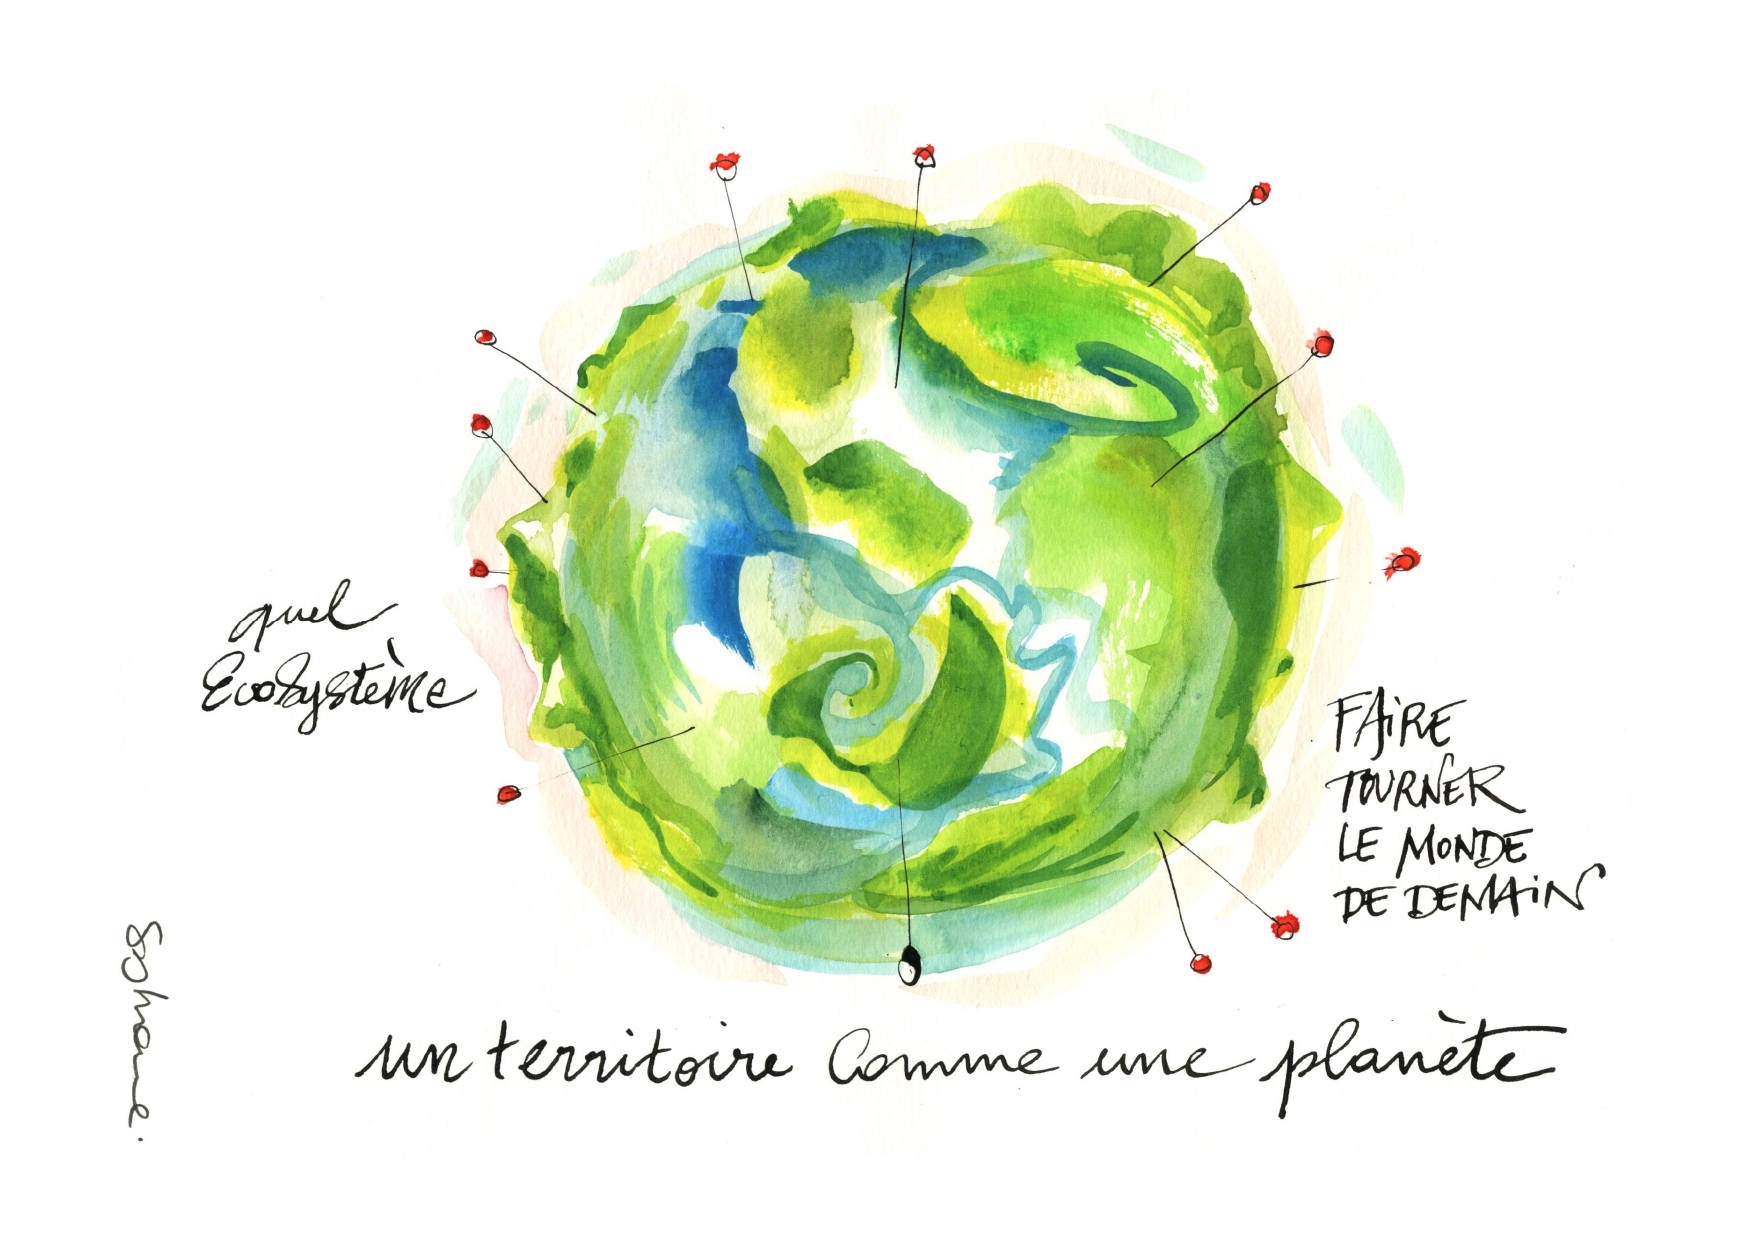 quel
Ecosystème
FAiRE
TOURNER
LE MONDE
DE DEMAiN
un territoire comme une planète